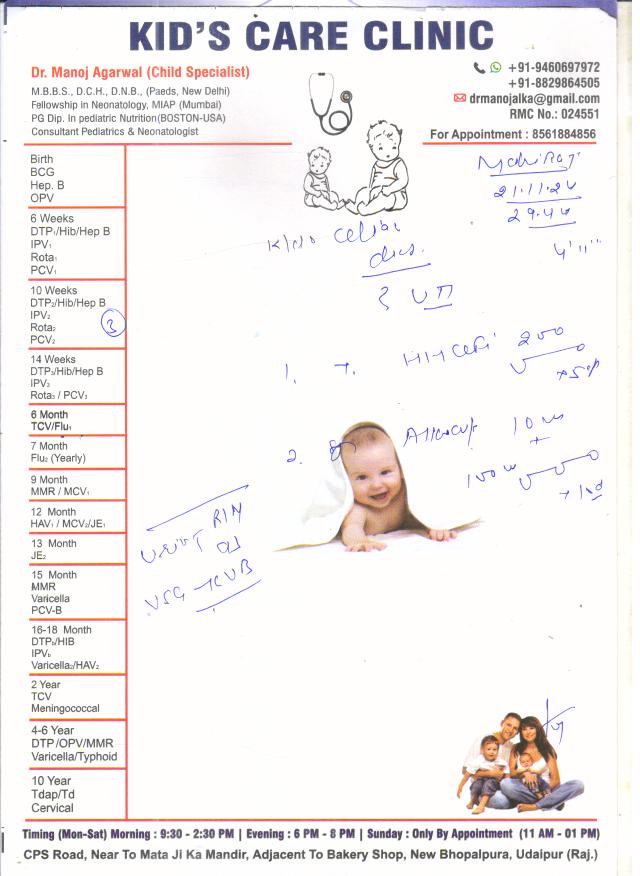 KID'S CARE CLINIC
Dr. Manoj Agarwal (Child Specialist)
M.B.B.S., D.C.H., D.N.B., (Paeds, New Delhi)
Fellowship in Neonatology, MIAP (Mumbai)
PG Dip. In pediatric Nutrition(BOSTON-USA)
Consultant Pediatrics & Neonatologist
+91-9460697972
+91-8829864505
drmanojalka@gmail.com
RMC No.: 024551
For Appointment : 8561884856
Birth
BCG
Hep. B
OPV
6 Weeks
DTP₁/Hib/Hep B
IPV₁
Rota₁
PCV₁
10 Weeks
DTP₂/Hib/Hep B
IPV₂
Rota₂
PCV₂
3
14 Weeks
DTP₃/Hib/Hep B
IPV₃
Rota₃ / PCV₃
6 Month
TCV/Flu₁
7 Month
Flu₂ (Yearly)
9 Month
MMR / MCV₁
12 Month
HAV₁ / MCV₂/JE₁
13 Month
JE₂
15 Month
MMR
Varicella
PCV-B
16-18 Month
DTPb/HIB
IPVb
Varicella₂/HAV₂
2 Year
TCV
Meningococcal
4-6 Year
DTP/OPV/MMR
Varicella/Typhoid
10 Year
Tdap/Td
Cervical
21.11.24
K/c/o Celiac
1. T. 200
2. 10 ml
+
100
USG KUB
Timing (Mon-Sat) Morning : 9:30 - 2:30 PM | Evening : 6 PM - 8 PM | Sunday : Only By Appointment (11 AM - 01 PM)
CPS Road, Near To Mata Ji Ka Mandir, Adjacent To Bakery Shop, New Bhopalpura, Udaipur (Raj.)